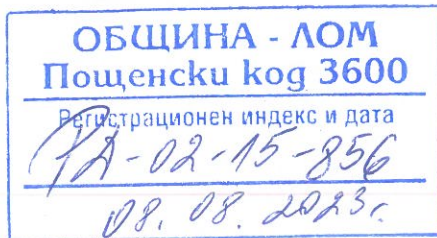 ОБЩИНА - ЛОМ
Пощенски код 3600
Регистрационен индекс и дата
РД-02-15-856
08.08.2023г.